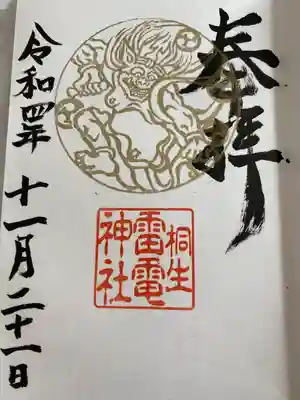 奉拝
桐生
雷電
神社
令和四年
十一月二十一日